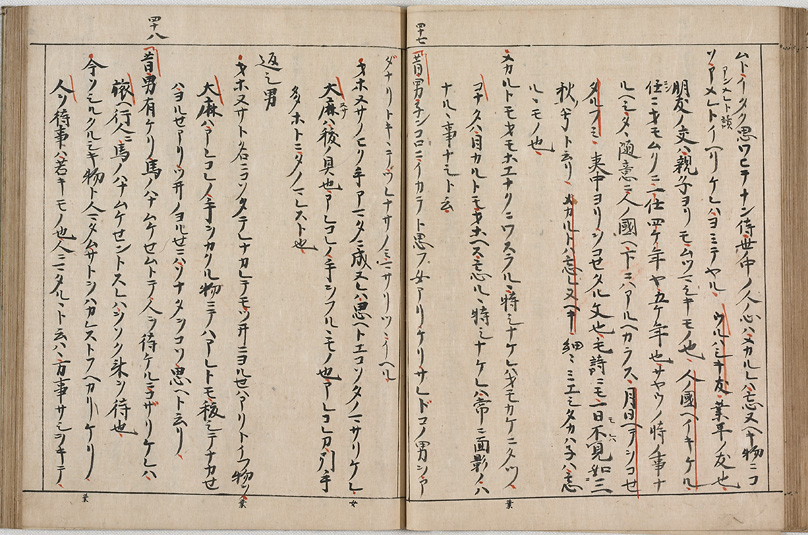 四十七
ムトイタク思ワヒテナン侍世中ノ人ノ心ハメカルレハ忘ヌヘキ物ニコ
ソアメレトイヘリケレハヨミテヤル ウルハシキ友 業平ノ友也
アンメレト讀
朋友ノ交ハ親子ヨリモムツマシキモノ也 人國ヘイキケル
四ケ年や五ケ年也サヤウノ時ノ事ナ
ルヘシタヽ随意ニ人ノ國ヘ下ニハアルヘカラス 月日ヲ
タルフミ 夷中ヨリヲコせタル文也モ詩ニモ一日不見如三
秋ナト云リ メカルトハ忘レヌヘキ 細々ミエ
ルヽモノ也
メカルトモオモホエナクニワスラルヽ時シナケレハオモカケニタツ 業
コナタハ目カルトモオホヘス忘ルヽ時シナケレハ常ニ面影ノハ
ナルヽ事ナシト云
昔男ネンコロニイカテト思フ女アリケリサレトコノ男ヲア
四十八
タナリトキヽテツレナサノミマサリツヽイヘル
オホヌサノヒク手アマタニ成ヌレハ思ヘトエコソタノマサリケレ 女
大麻ハ祓ノ具也アレコレノ手ニフルヽモノ也アレコレカ引手
多ホトニタノマレスト也
返シ男
オホヌサト名ニコソタテレナカレテモツヰニヨルせハアリトイフ物ヲ 業
大麻ハアレコレノ手ニカヽル物ニテハアレトモ祓シテナカせ
ハヨルせアリツヰノヨルせニハソナタヲコソ思ヘト云リ
昔男有ケリ馬ノハナムケせムトテ人ヲ待ケルニコサリケレハ
旅ヘ行人ニ馬ノハナムケセントスレハヲソク来ヲ待也
今ソシルクルシキ物ト人マタムサトヲハカレストフヘカリケリ 業
人ヲ待事ハ苦キモノ也人ニマタルヽト云ハ万事サシヲキテ